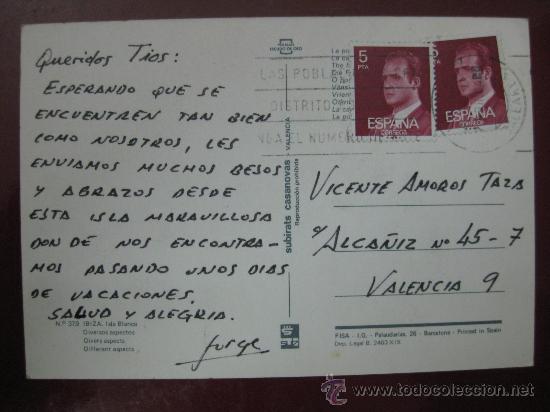 Queridos Tios:
ESPERANDO QUE SE
ENCUENTREN TAN BIEN
COMO NOSOTROS, LES
ENVIAMOS MUCHOS BESOS
Y ABRAZOS DESDE
ESTA ISLA MARAVILLOSA
DON DE NOS ENCONTRA-
MOS PASANDO UNOS DIAS
DE VACACIONES.
SALUD Y ALEGRIA.
Jorge
Nº 379 IBIZA. Isla Blanca
Diversos aspectos
Divers aspects
Different aspects
ESCUDO DE ORO
subirats casanovas - VALENCIA
Reproducción prohibida
LAS POBL
DISTRITO
NGA EL NUMER
5
PTA
ESPAÑA
CORREOS
5
ESPAÑA
CORREOS
VICENTE AMOROS TAZA
c/ ALCAÑIZ Nº 45-7
VALENCIA 9
FISA - I.G. - Palaudarias, 26 - Barcelona - Printed in Spain
Dep. Legal B. 2463-XIX
todocoleccion.net